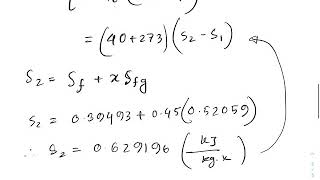 = (40+273) (S₂ - S₁)
S₂ = Sf + x Sfg
S₂ = 0.39493 + 0.45(0.52059)
∴ S₂ = 0.629196 (kJ/kg.k)